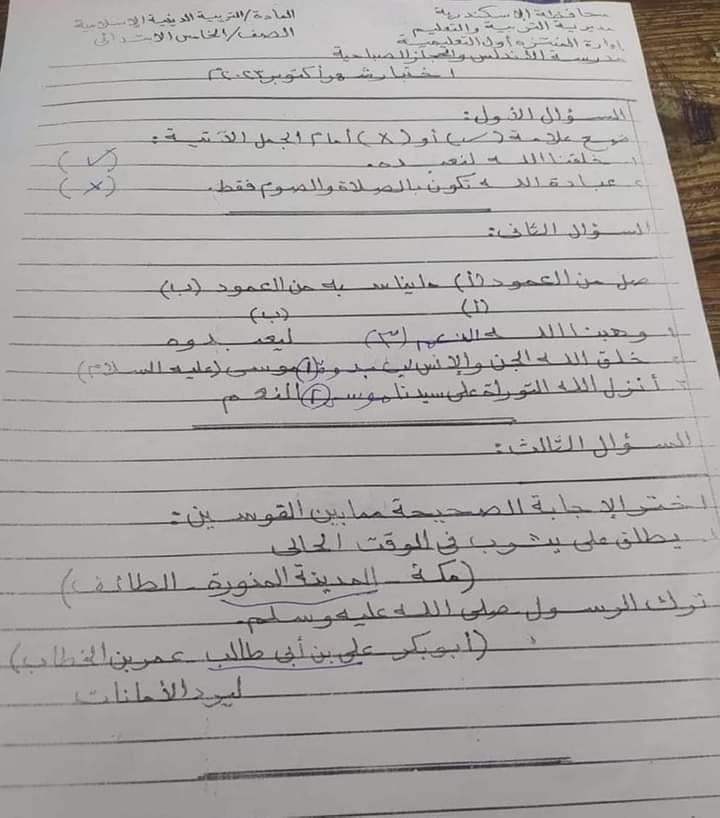 محافظة الاسكندرية
المادة/التربية الدينية الاسلامية
مديرية التربية والتعليم
الصف/الخامس الابتدائى
إدارة المنتزه أول التعليمية
مدرسة الأندلس والحجاز الصباحية
اختبار شهر أكتوبر ٢٠٢٣م
السؤال الأول:
ضع علامة (✓) أو (×) أمام الجمل الآتية:
١. خلقنا الله لنعبده. (✓)
٢. عبادة الله تكون بالصلاة والصوم فقط. (×)
السؤال الثانى:
صل من العمود (أ) مايناسبه من العمود (ب)
(أ) (ب)
١. وهبنا الله النعم (٣) ليعبدوه
٢. خلق الله الجن والإنس ليعبدوه (١) موسى (عليه السلام)
٣. أنزل الله التوراة على سيدنا موسى (٢) النعم
السؤال الثالث:
اختر الإجابة الصحيحة مما بين القوسين:
١. يطلق على يثرب فى الوقت الحالى
(مكة - المدينة المنورة - الطائف)
ترك الرسول صلى الله عليه وسلم.
(أبوبكر علي بن أبى طالب عمر بن الخطاب)
ليرد الأمانات